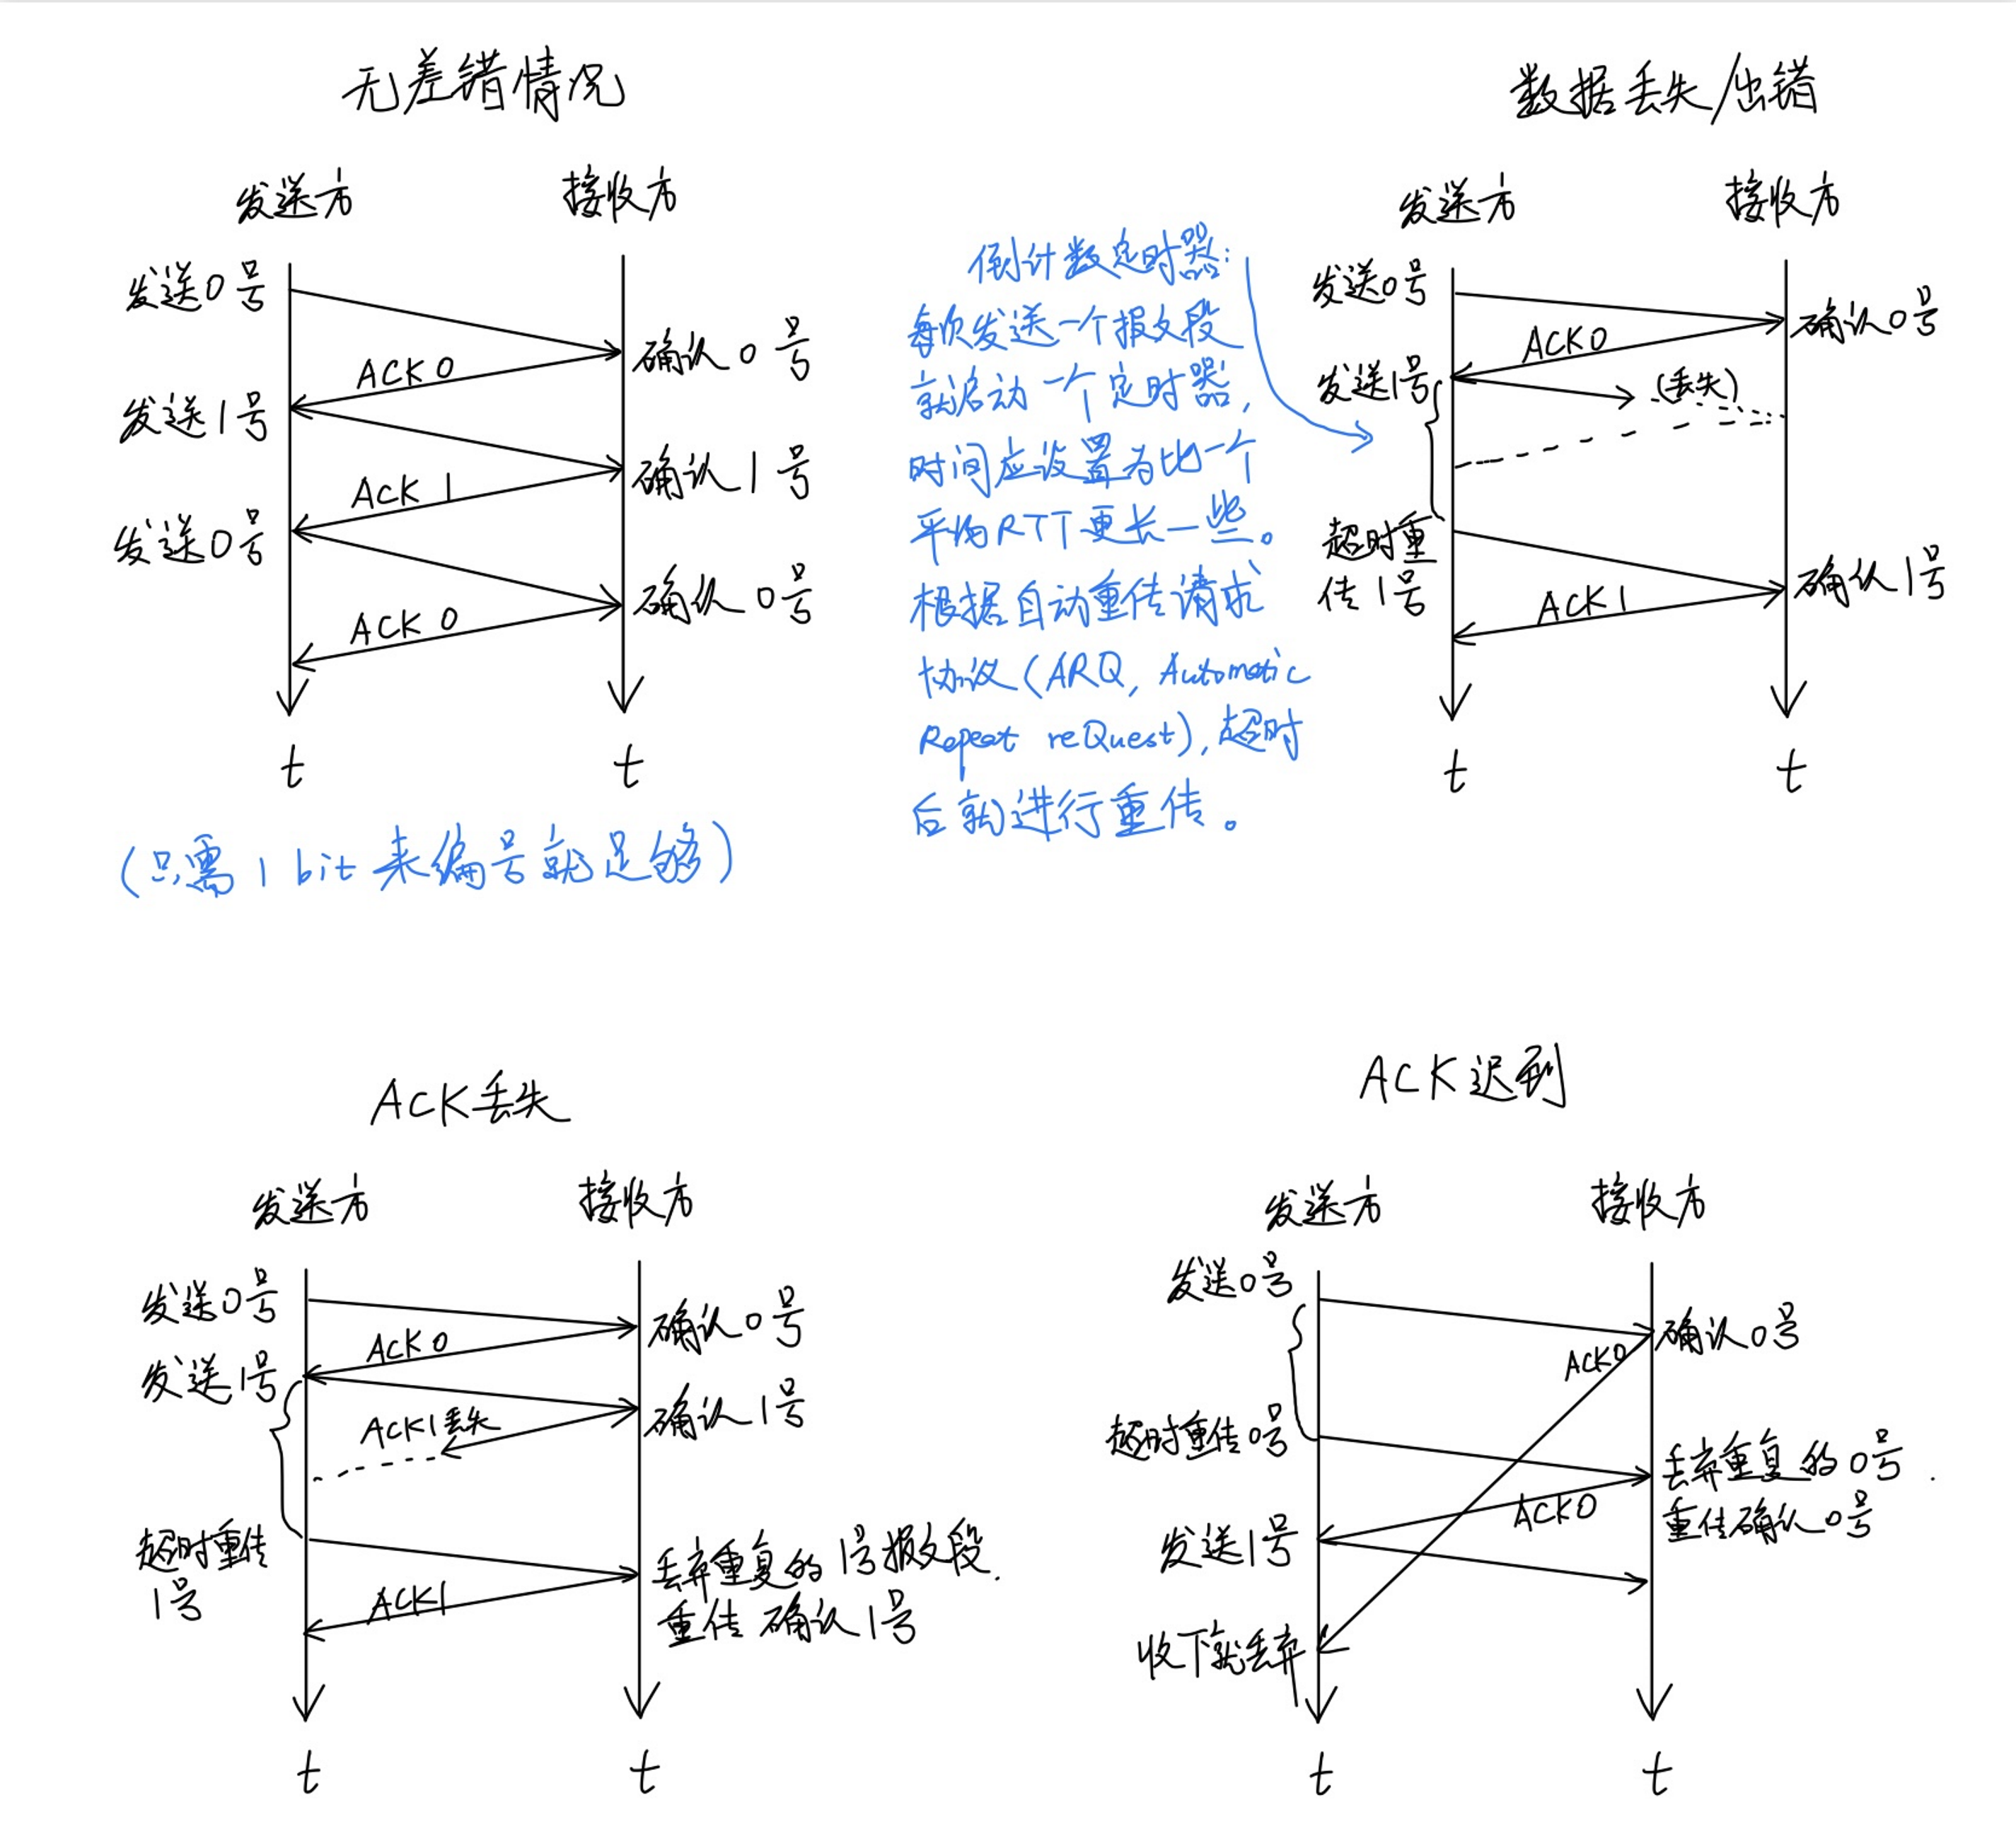 无差错情况
发送方
接收方
发送0号
确认0号
ACK 0
发送1号
确认1号
ACK 1
发送0号
确认0号
ACK 0
t
t
(只需1bit来编号就足够)
倒计数定时器:
每次发送一个报文段
就启动一个定时器,
时间应设置为比一个
平均RTT更长一些。
根据自动重传请求
协议(ARQ, Automatic
Repeat reQuest),超时
后就进行重传。
数据丢失/出错
发送方
接收方
发送0号
确认0号
ACK0
发送1号
(丢失)
超时重
传1号
确认1号
ACK1
t
t
ACK丢失
发送方
接收方
发送0号
确认0号
ACK0
发送1号
确认1号
ACK1丢失
超时重传
1号
丢弃重复的1号报文段.
重传确认1号
ACK1
t
t
ACK迟到
发送方
接收方
发送0号
确认0号
ACK0
超时重传0号
丢弃重复的0号.
重传确认0号
ACK0
发送1号
收下就丢弃
t
t